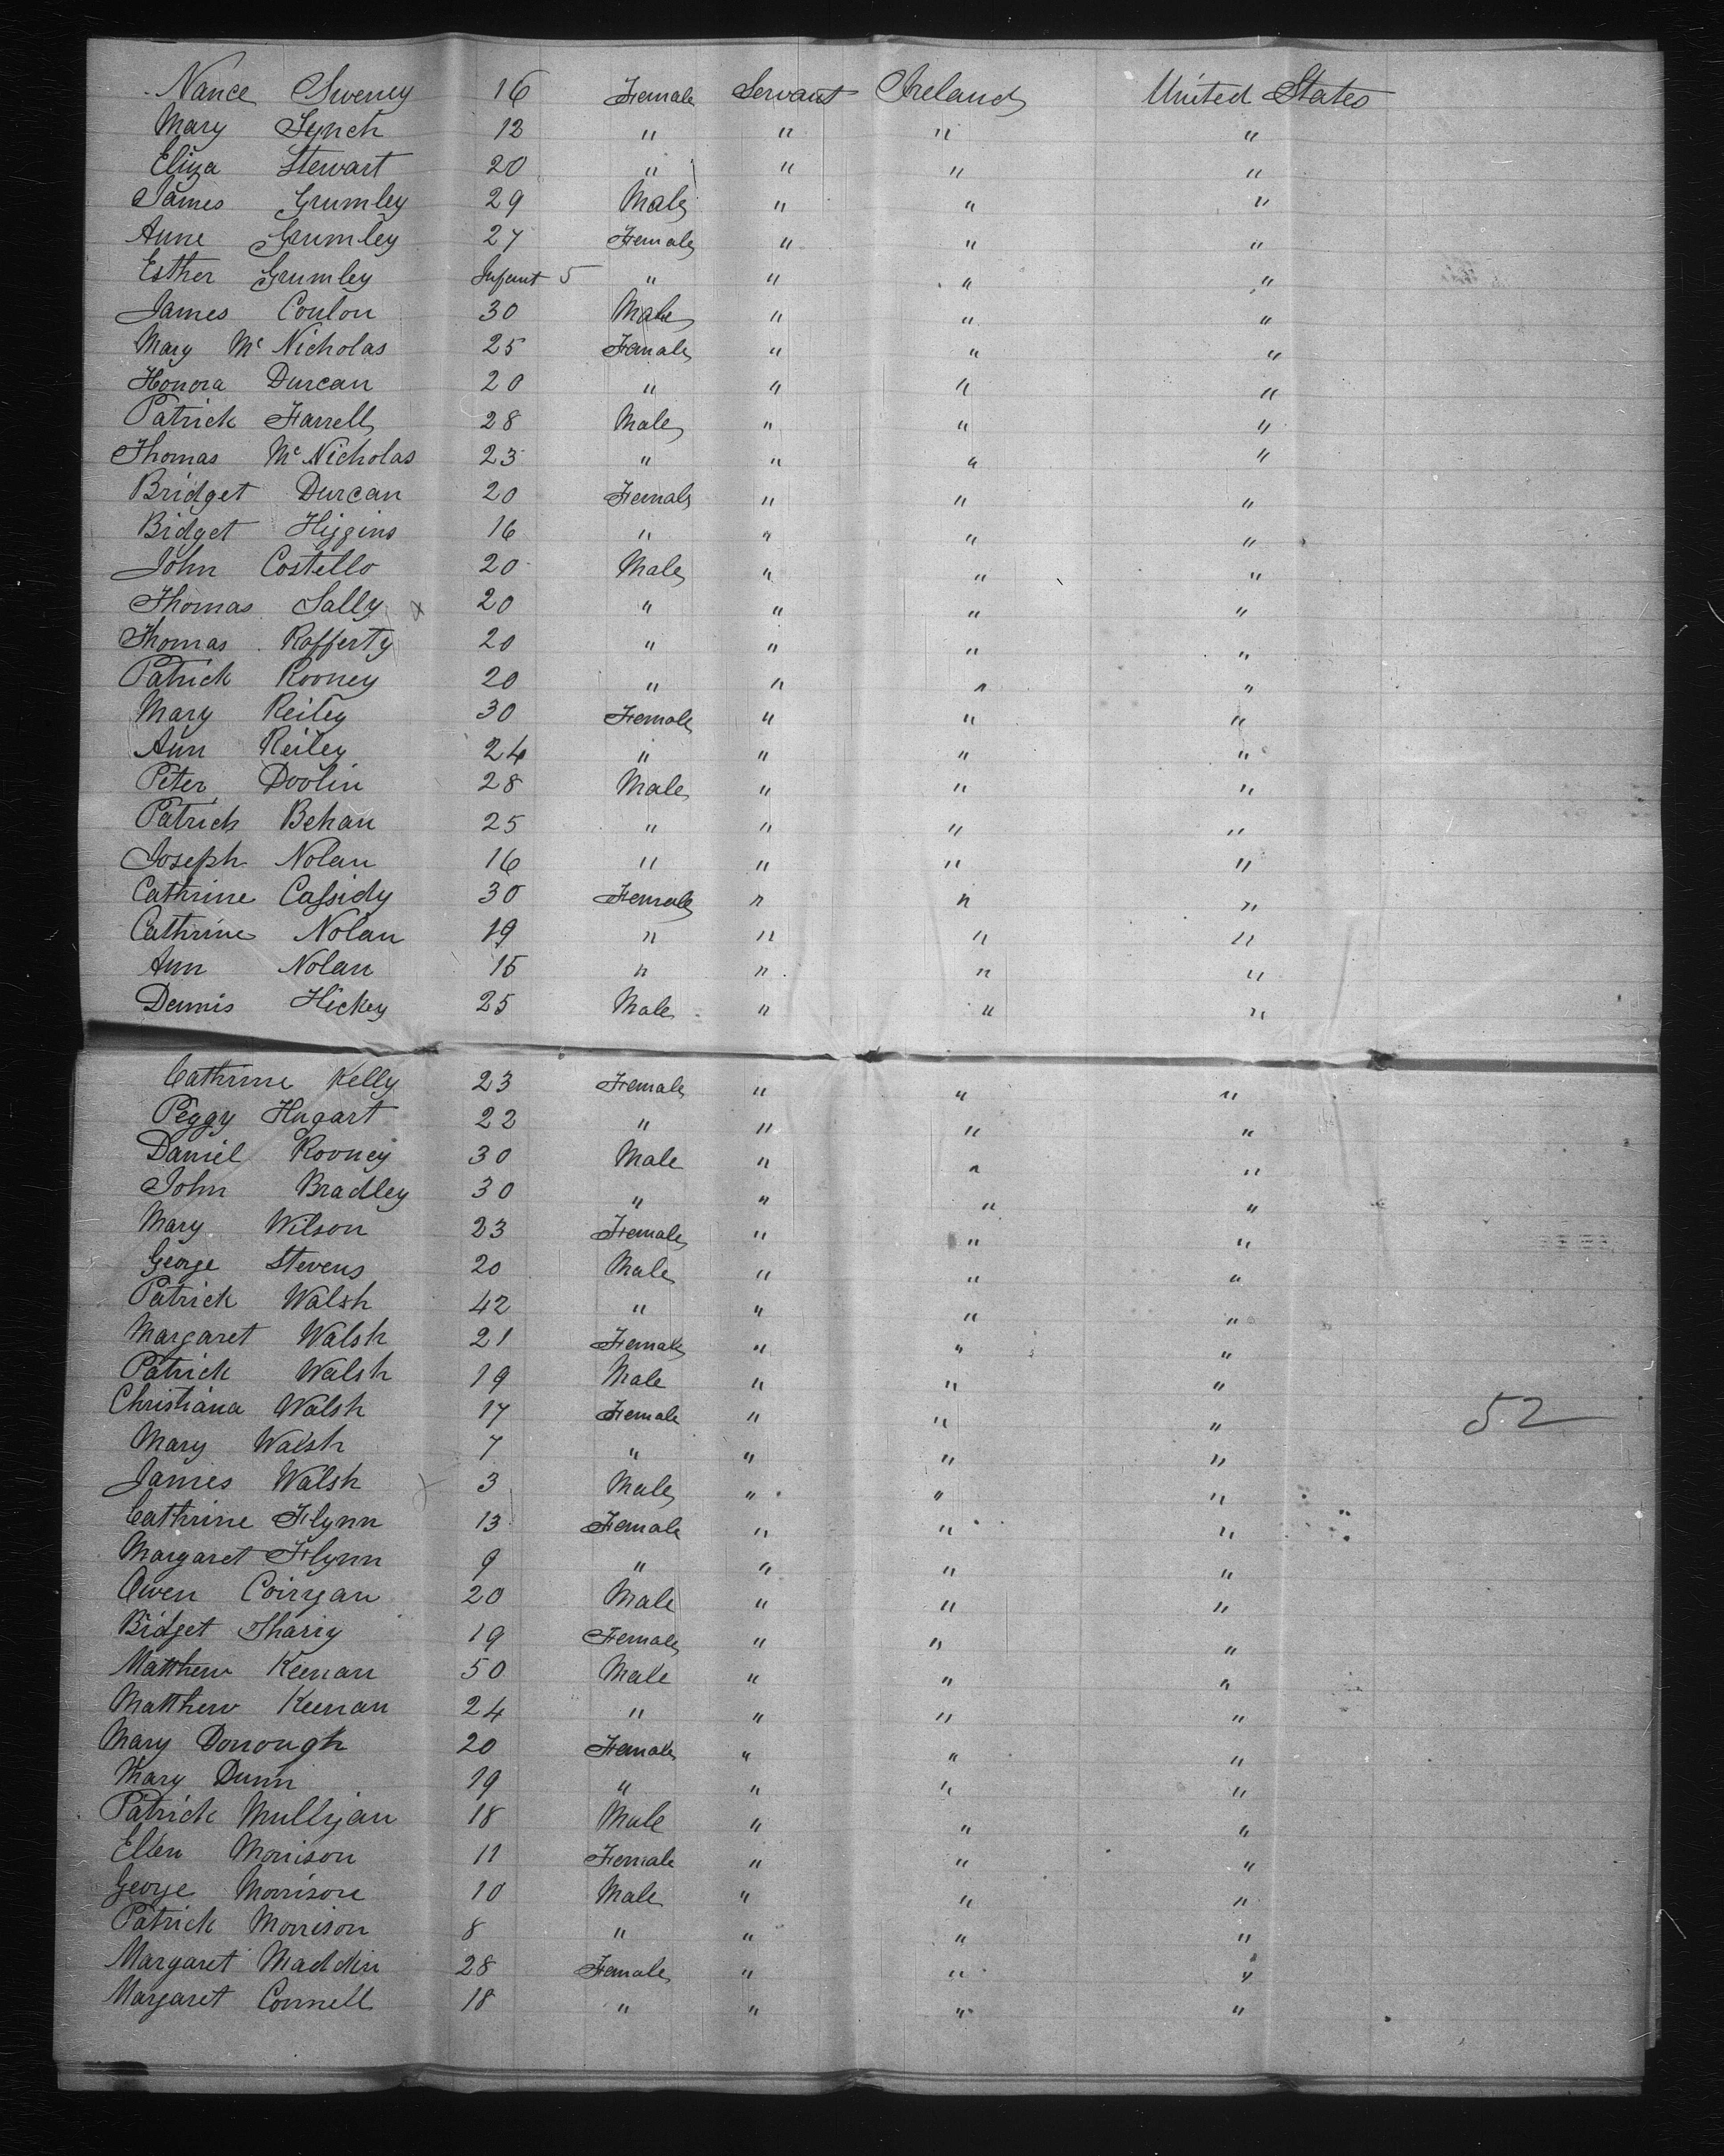 Nance Sweney 16 Female Servant Ireland United States
Mary Lynch 12 " " " "
Eliza Stewart 20 " " " "
James Grumley 29 Male " " "
Anne Grumley 27 Female " " "
Esther Grumley Infant 5 " " " "
James Conlon 30 Male " " "
Mary Mc Nicholas 25 Female " " "
Honora Durcan 20 " " " "
Patrick Farrell 28 Male " " "
Thomas Mc Nicholas 23 " " " "
Bridget Durcan 20 Female " " "
Bidget Higgins 16 " " " "
John Costello 20 Male " " "
Thomas Sally x 20 " " " "
Thomas Rafferty 20 " " " "
Patrick Rooney 20 " " " "
Mary Reiley 30 Female " " "
Ann Reiley 24 " " " "
Peter Doolin 28 Male " " "
Patrick Behan 25 " " " "
Joseph Nolan 16 " " " "
Cathrine Cassidy 30 Female " " "
Cathrine Nolan 19 " " " "
Ann Nolan 15 " " " "
Dennis Hickey 25 Male " " "
Cathrine Kelly 23 Female " " "
Peggy Hugart 22 " " " "
Daniel Rooney 30 Male " " "
John Bradley 30 " " " "
Mary Wilson 23 Female " " "
George Stevens 20 Male " " "
Patrick Walsh 42 " " " "
Margaret Walsh 21 Female " " "
Patrick Walsh 19 Male " " "
Christiana Walsh 17 Female " " " 52
Mary Walsh 7 " " " "
James Walsh x 3 Male " " "
Cathrine Flynn 13 Female " " "
Margaret Flynn 9 " " " "
Owen Corrigan 20 Male " " "
Bidget 19 Female " " "
Matthew Keenan 50 Male " " "
Matthew Keenan 24 " " " "
Mary Donough 20 Female " " "
Mary Dunn 19 " " " "
Patrick Mulligan 18 Male " " "
Ellen Morrison 11 Female " " "
George Morrison 10 Male " " "
Patrick Morrison 8 " " " "
Margaret Maddin 28 Female " " "
Margaret Connell 18 " " " "